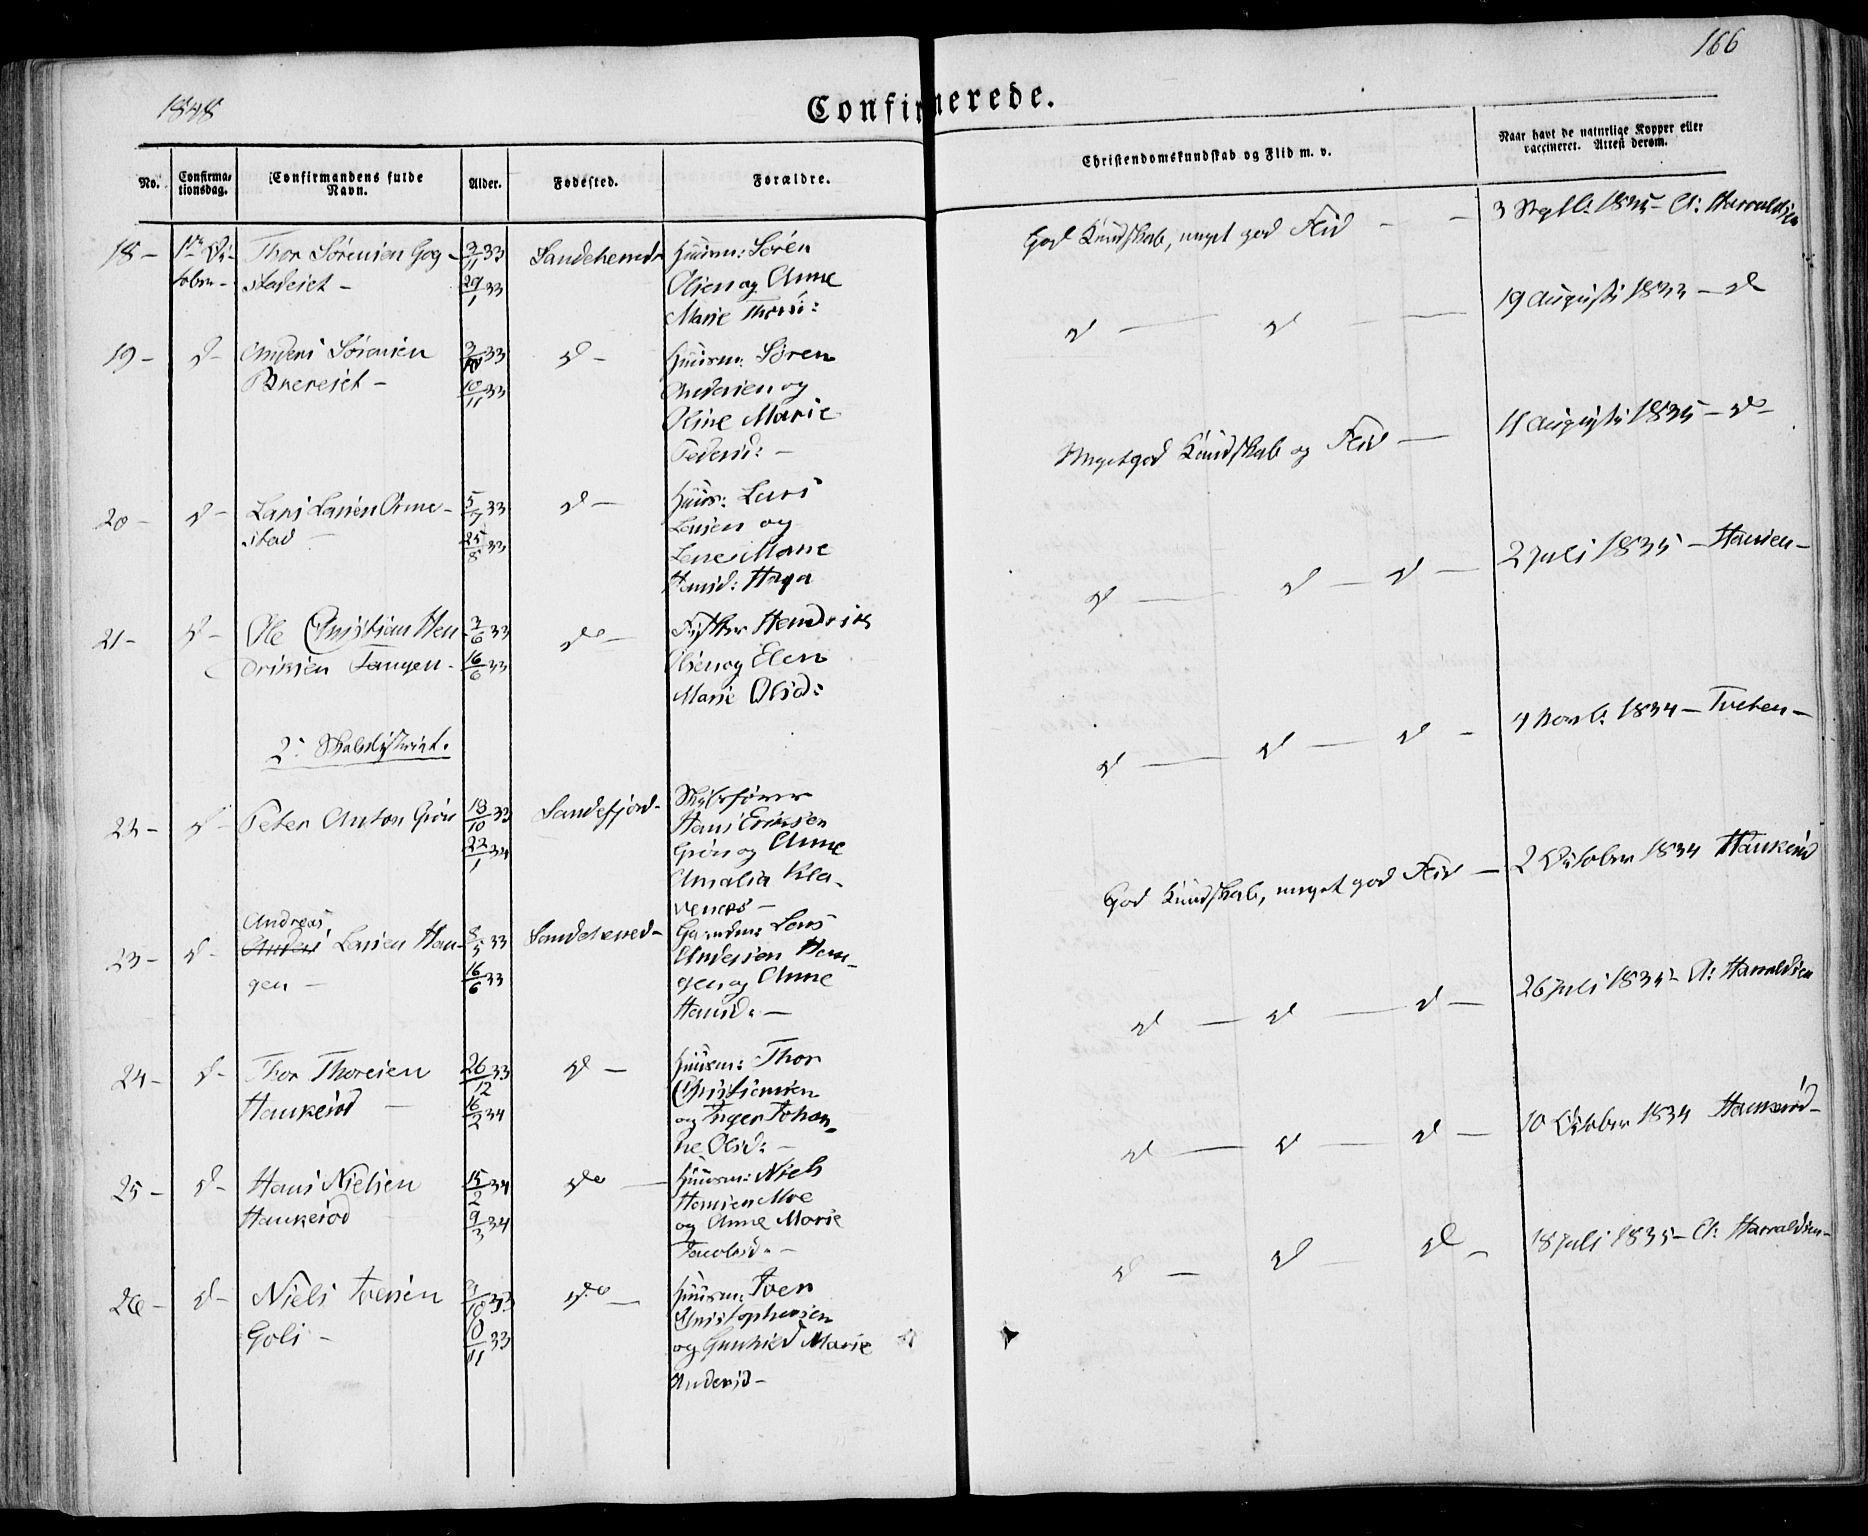 166
1848
Confirmerede.
No.
Confirma-
tionsdag.
Confirmandens fulde
Navn.
Alder.
Fødested.
Forældre.
Christendomskundskab og Flid m. v.
Naar havt de naturlige Kopper eller
vaccineret. Attest derom.
18 -
1ste Oc-
tober -
Thor Sörensen Gog-
stadeiet -
3/11 33
29/1 33
Sandeherred
Huusm: Sören
Olsen og Anne
Marie Thorsd:
God Kundskab, meget god Flid - -
3 Septb: 1835 - A: Harraldsen
19 -
d -
Anders Sörensen
3/10 33
10/11 33
d -
Huusm: Sören
Andersen og
Oline Marie
Pedersd: -
d — d —
19 August 1833 - d
20 -
d -
Lars Larsen Orme-
stad -
5/7 33
25/8 33
d -
Huusm: Lars
Larsen og
Lene Marie
Hansd: Haga
Meget god Kundskab og Flid -
11 August 1835 - do -
21 -
d -
Ole Christian Hen-
driksen Tangen -
3/6 33
16/6 33
do -
Hendrik
Olsen og Elen
Marie Olsd:
d — d - d -
2 Juli 1835 - Hansen -
2: Skoledistrict.
22 -
d -
Peter Anton Grön
18/10 33
22/1 34
Sandefjord -
Skibsförer
Hans Eriksen
Grön og Anne
Amalia Kla-
venes -
d — d — d -
4 Novb: 1834 - Tveten -
23 -
d -
Andreas
Anders Larsen Hau-
gen -
8/5 33
16/6 33
Sandeherred -
Gaardm: Lars
Andersen Hau-
gen og Anne
Hansd: -
God Kundskab, meget god Flid -
2 October 1834 Haukeröd
24 -
d -
Thor Thoresen
Haukeröd -
26/12 33
16/2 34
d -
Huusm: Thor
Christiansen
og Inger Johan-
ne Olsd: -
d — d — d -
26 Juli 1835 - A: Harraldsen
25 -
d -
Hans Nielsen
Haukeröd -
15/2 34
9/3 34
do -
Huusm: Niels
Hansen Moe
og Anne Marie
Jacobsd: -
d — d — d -
10 October 1834 Haukeröd -
26 -
d -
Niels Iversen
Goli -
10/11 33
do -
Huusm: Iver
Christophersen
og Gunhild Marie
Andersd -
d — d — d -
18 Juli 1835 - A: Harraldsen -